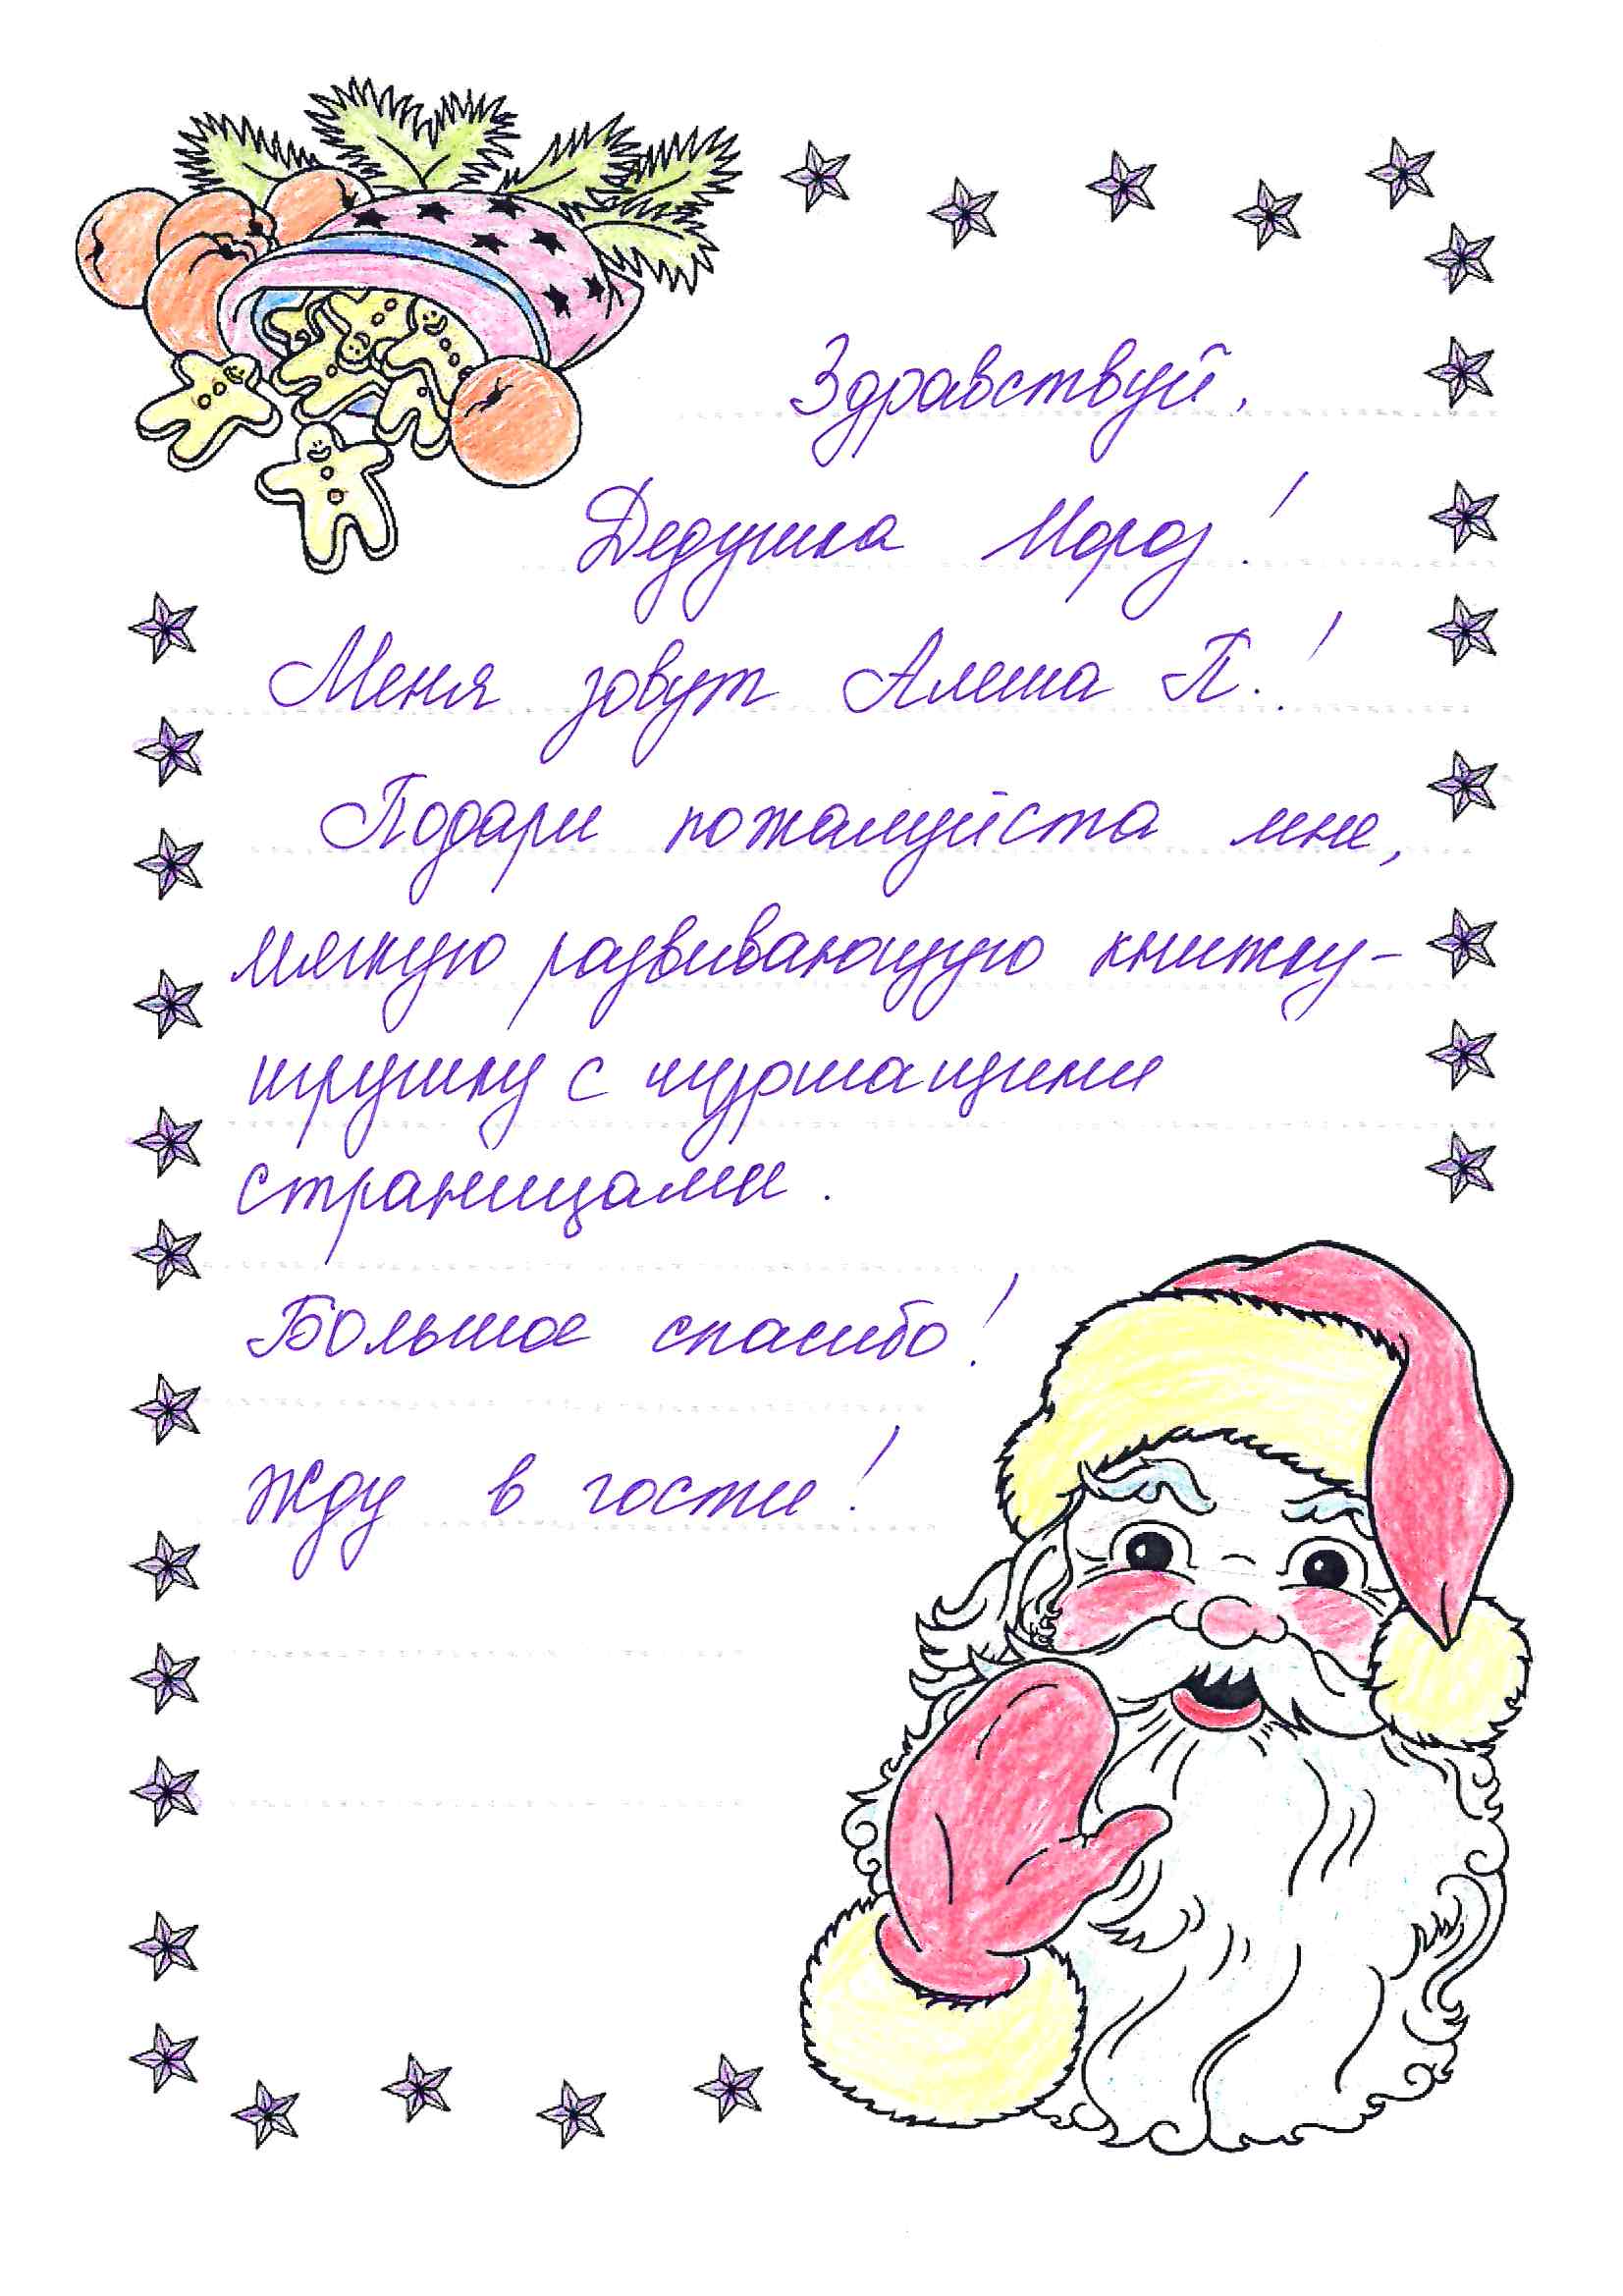 Здравствуй,
Дедушка Мороз!
Меня зовут Алеша П.!
Подари пожалуйста мне,
мягкую развивающую книжку-
игрушку с шуршащими
страницами.
Большое спасибо!
Жду в гости!